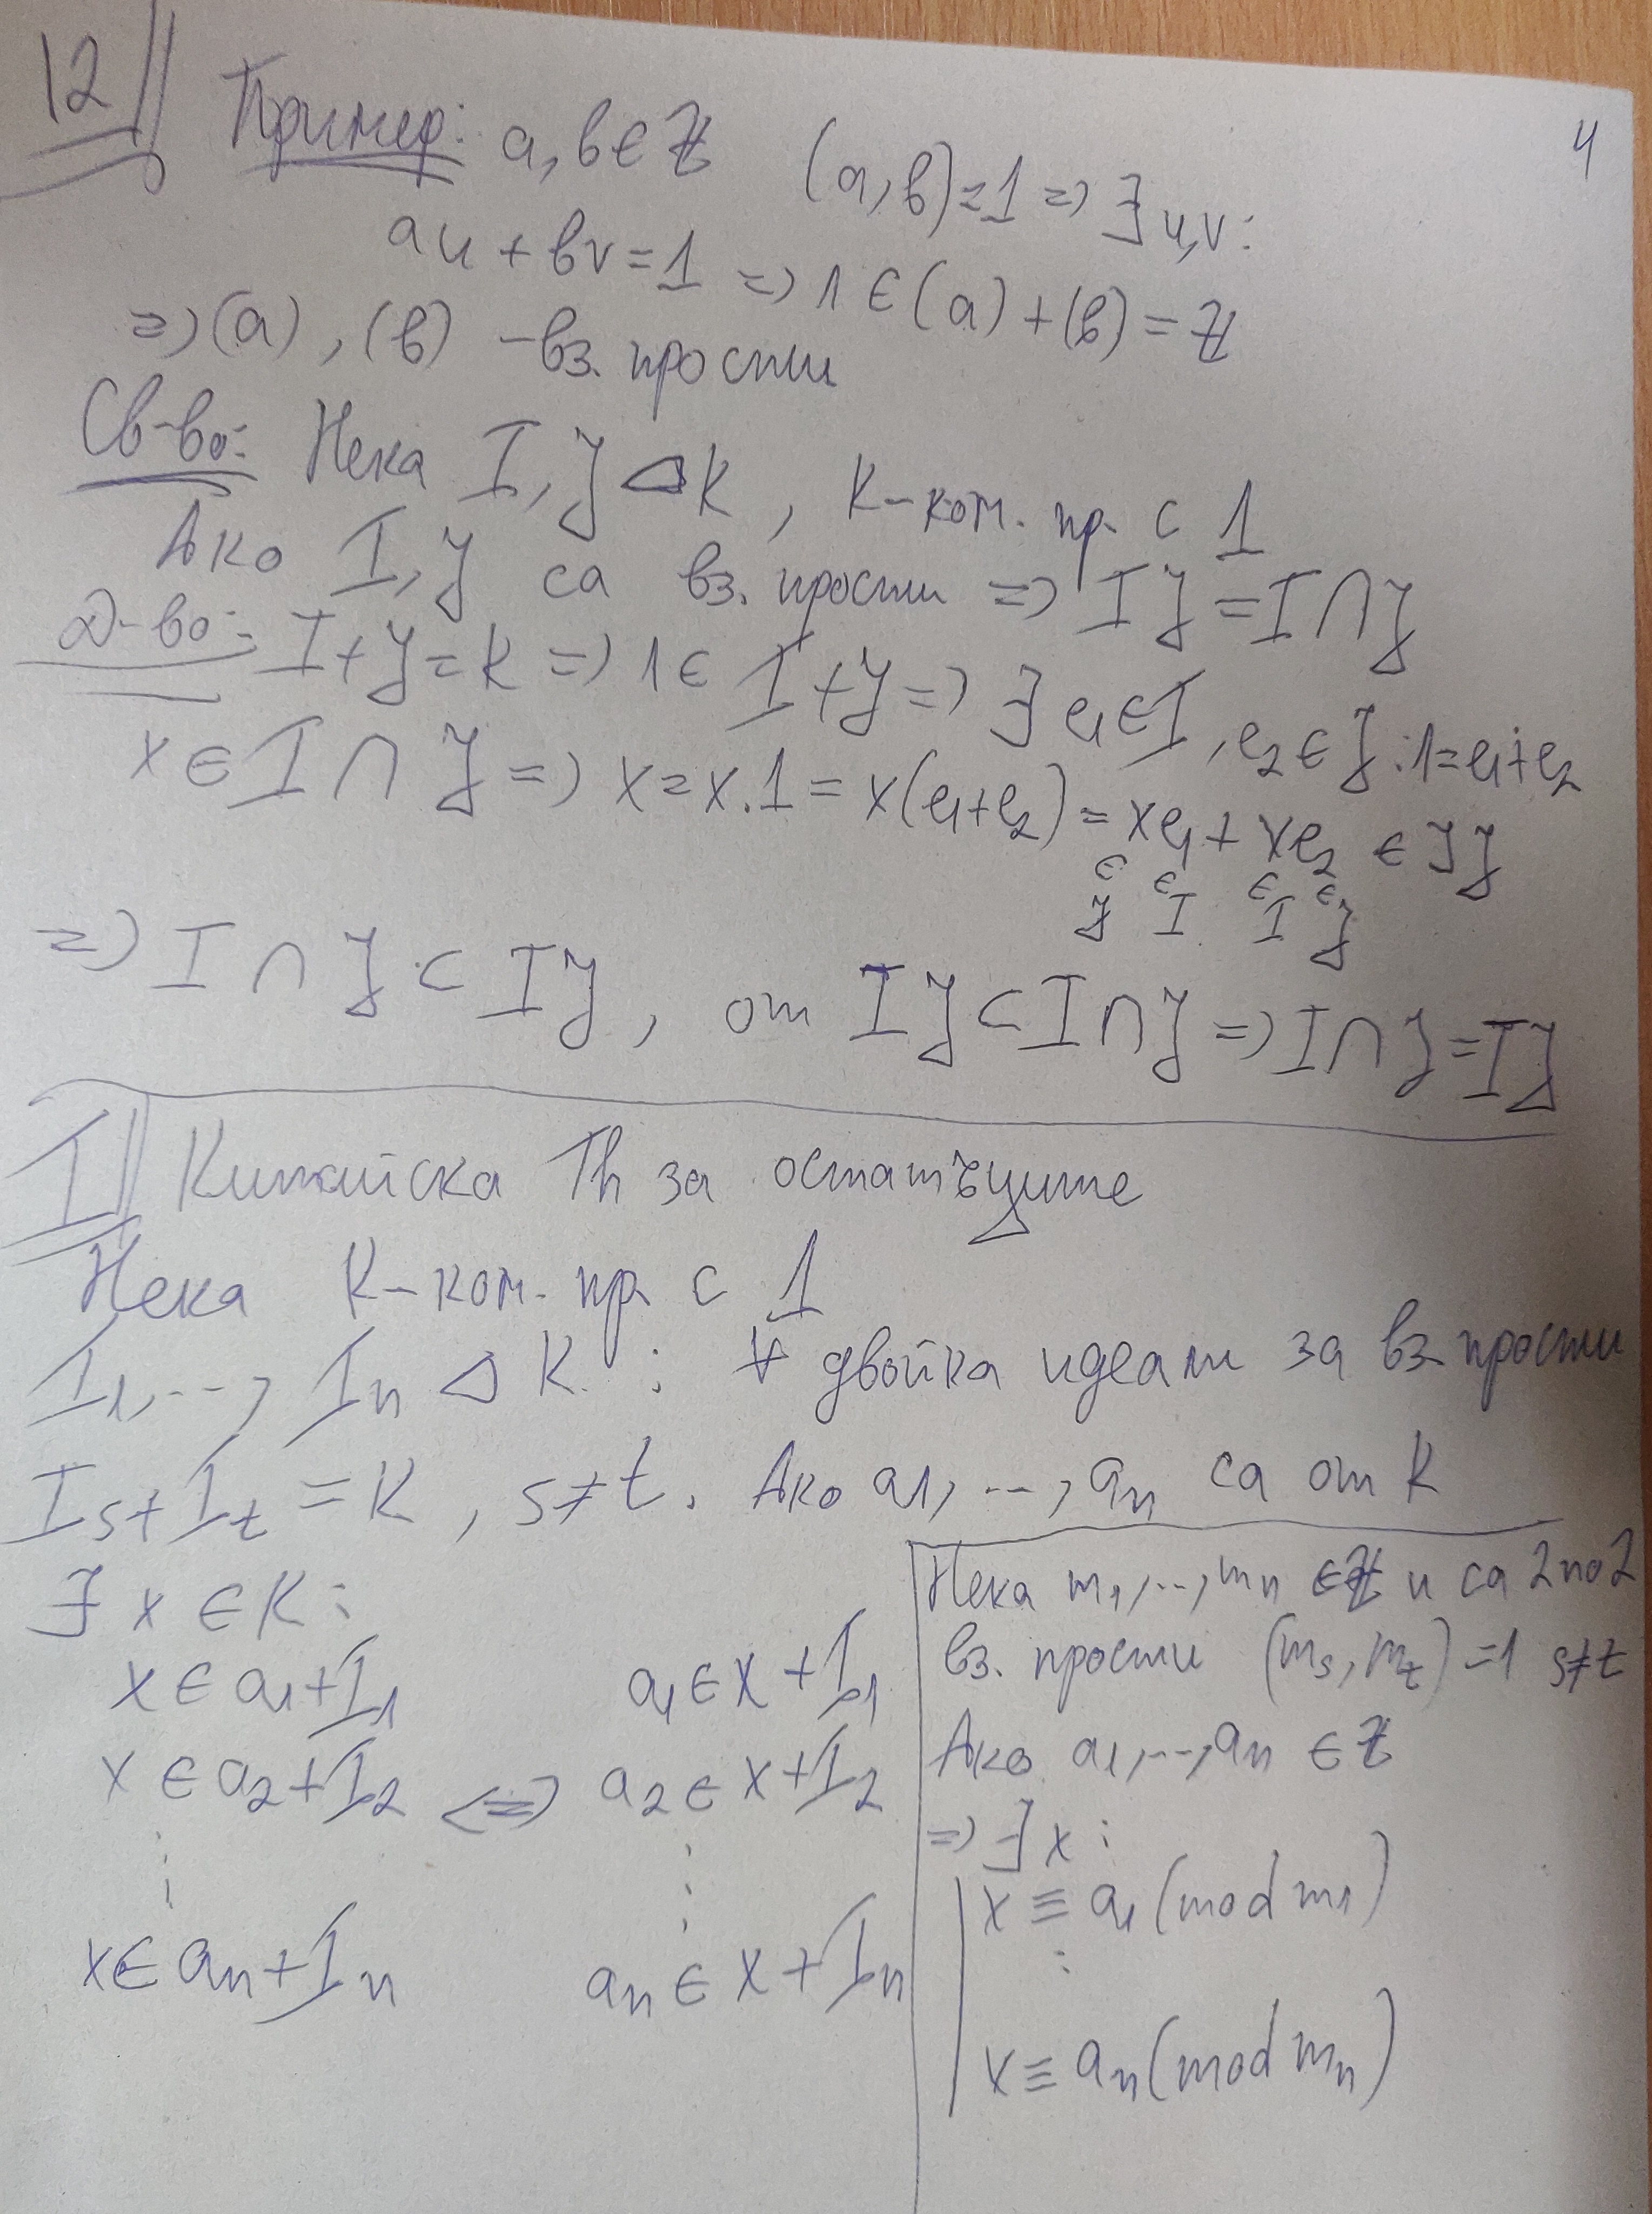 12
4
Пример: a, b ∈ ℤ (a, b) = 1 => ∃ u, v:
au + bv = 1 => 1 ∈ (a) + (b) = ℤ
=> (a), (b) - вз. прости
Св-во: Нека I, J ⊲ K, K - ком. пр. с 1
Ако I, J са вз. прости => IJ = I ∩ J
Д-во: I + J = K => 1 ∈ I + J => ∃ e₁ ∈ I, e₂ ∈ J : 1 = e₁ + e₂
x ∈ I ∩ J => x = x.1 = x(e₁ + e₂) = xe₁ + xe₂ ∈ IJ
∈ ∈ ∈ ∈
J I I J
=> I ∩ J ⊂ IJ, от IJ ⊂ I ∩ J => I ∩ J = IJ
I Китайска Th за остатъците
Нека K - ком. пр. с 1
I₁, ..., Iₙ ⊲ K : ∀ двойка идеали за вз. прости
Iₛ + Iₜ = K, s ≠ t. Ако a₁, ..., aₙ са от K
∃ x ∈ K:
x ∈ a₁ + I₁ a₁ ∈ x + I₁
x ∈ a₂ + I₂ <=> a₂ ∈ x + I₂
⋮ ⋮
x ∈ aₙ + Iₙ aₙ ∈ x + Iₙ
Нека m₁, ..., mₙ ∈ ℤ и са 2 по 2
вз. прости (mₛ, mₜ) = 1 s ≠ t
Ако a₁, ..., aₙ ∈ ℤ
=> ∃ x:
x ≡ a₁ (mod m₁)
⋮
x ≡ aₙ (mod mₙ)